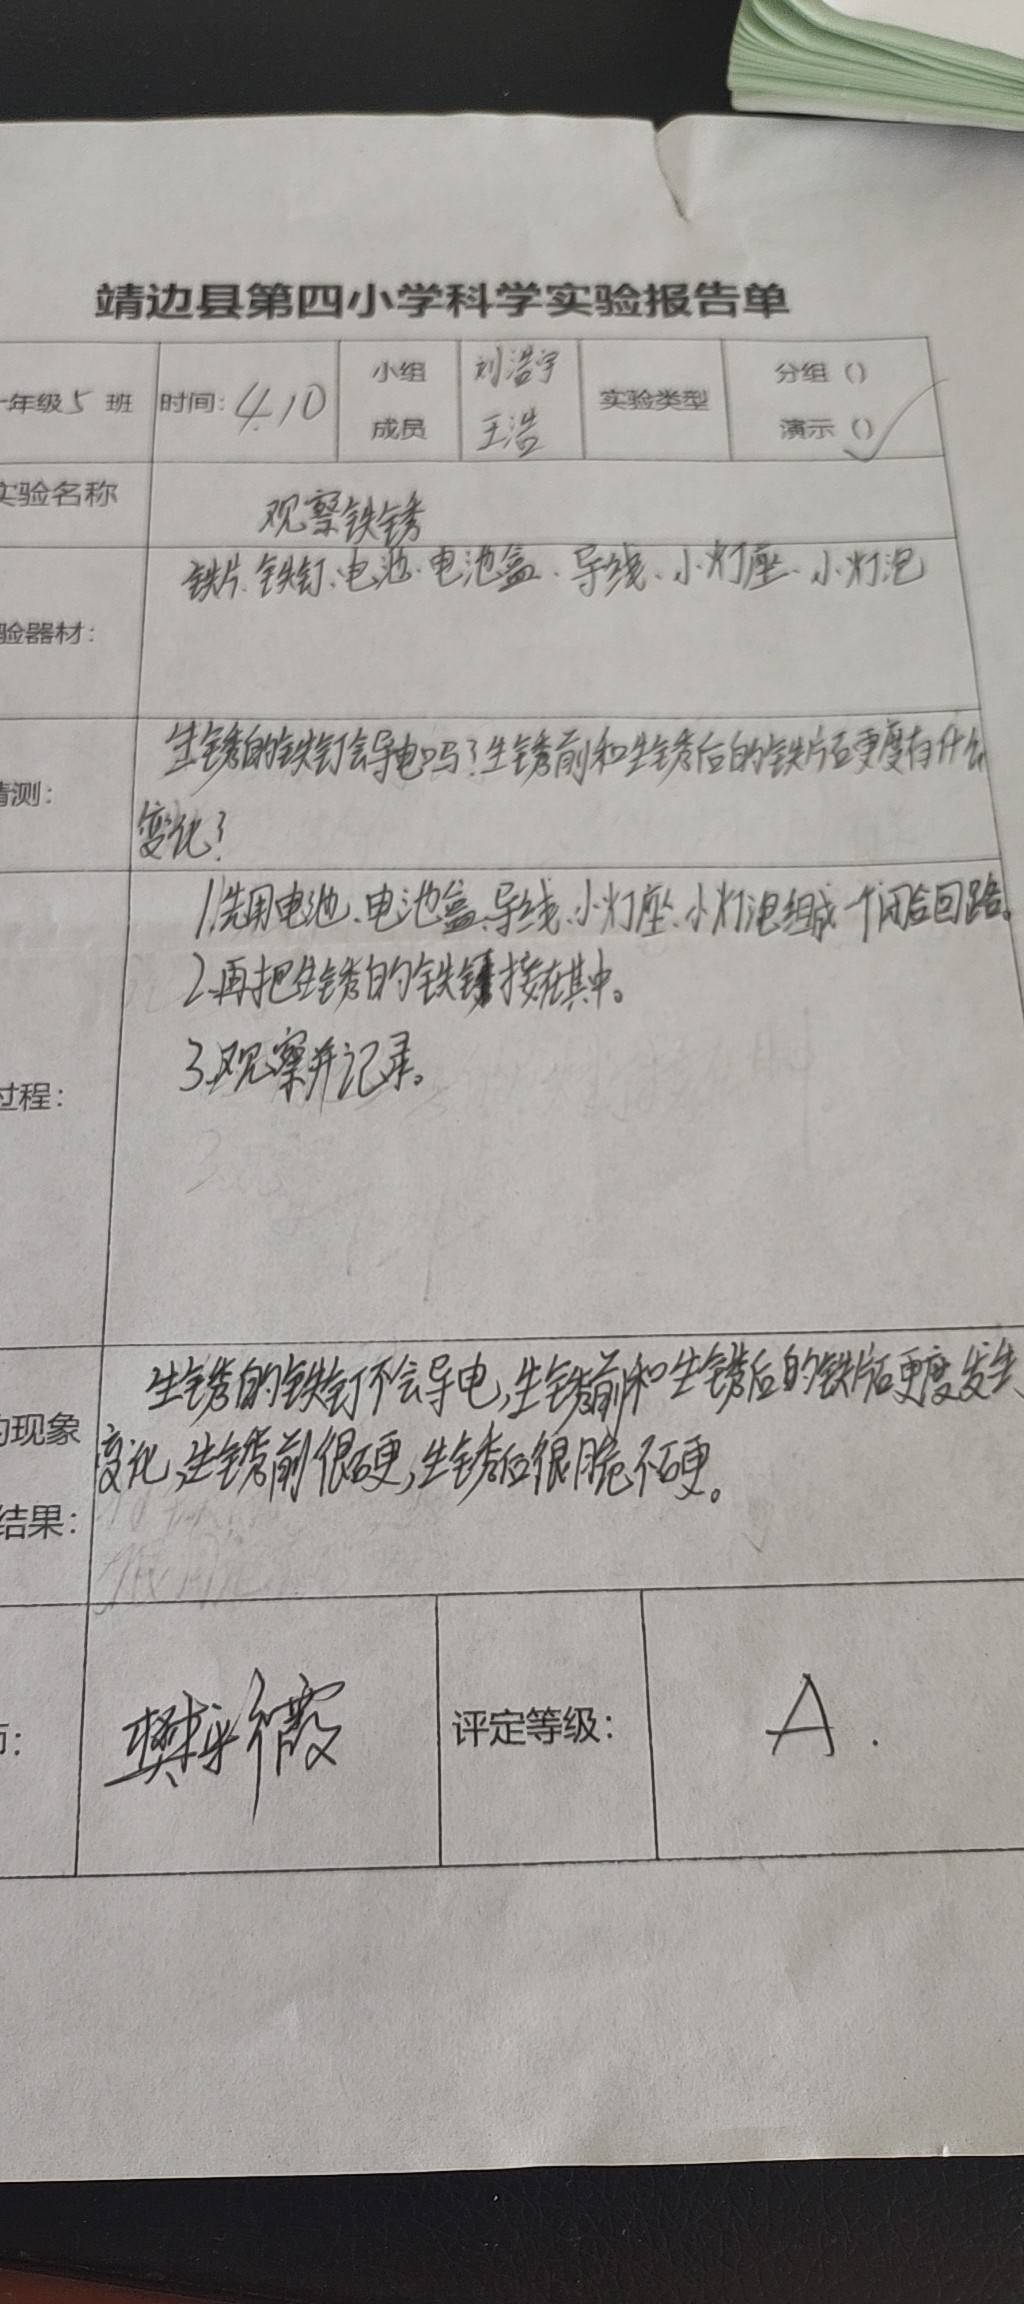 靖边县第四小学科学实验报告单
年级5班 时间：4.10 小组成员 刘浩宇 王浩 实验类型 分组（） 演示（）✓
实验名称 观察铁锈
验器材： 铁片、铁钉、电池、电池盒、导线、小灯座、小灯泡
猜测： 生锈的铁钉会导电吗？生锈前和生锈后的铁片硬度有什么
变化？
1.先用电池、电池盒、导线、小灯座、小灯泡组成一个闭合回路。
2.再把生锈的铁接在其中。
过程： 3.观察并记录。
生锈的铁钉不会导电，生锈前和生锈后的铁片硬度发生
的现象 变化，生锈前很硬，生锈后很脆不硬。
结果：
师： 樊彩霞 评定等级： A.